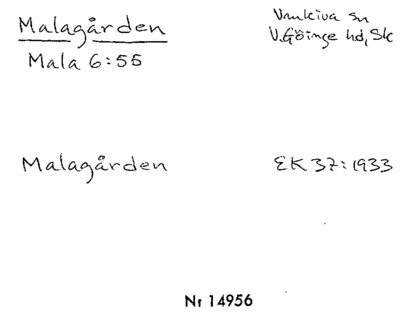 Malagården
Vankiva sn
V. Göinge hd, Sk
Mala 6:55
Malagården
EK 37:1933
Nr 14956